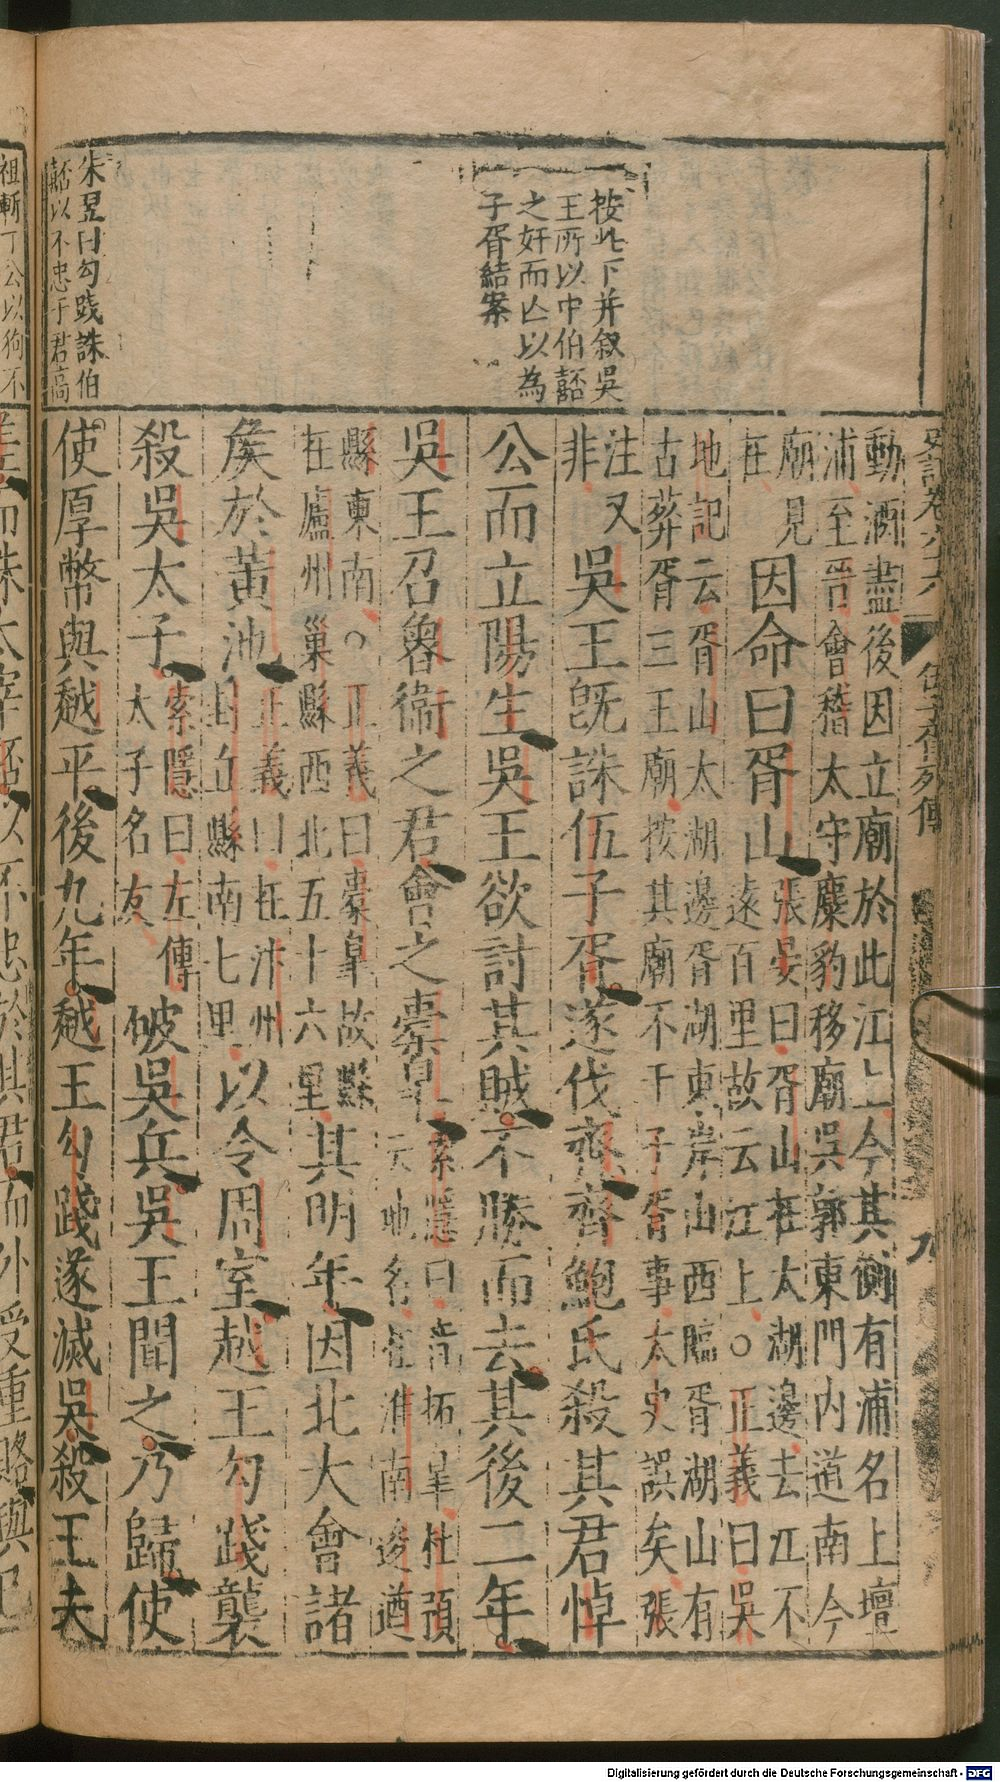 按此下并叙吳
王所以中伯嚭
之奸而亡以為
子胥結案
朱翌曰勾踐誅伯
嚭以不忠于君高
史記卷六十六
伍子胥列傳
九
動酒盡後因立廟於此江上今其側有浦名上壇
浦至晉會稽太守麋豹移廟吳郭東門內道南今
廟見
在
因命曰胥山
張晏曰胥山在太湖邊去江不
遠百里故云江上○正義曰吳
地記云胥山太湖邊胥湖東岸山西臨胥湖山有
古葬胥三王廟按其廟不干子胥事太史誤矣張
注又
非
吳王既誅伍子胥遂伐齊齊鮑氏殺其君悼
公而立陽生吳王欲討其賊不勝而去其後二年
吳王召魯衛之君會之橐皋
索隱曰音拓皋杜預
云地名在淮南逡遒
縣東南○正義曰橐皋故縣
在廬州巢縣西北五十六里
其明年因北大會諸
矦於黃池
正義曰在汴州
封丘縣南七里
以令周室越王勾踐襲
殺吳太子
索隱曰左傳
太子名友
破吳兵吳王聞之乃歸使
使厚幣與越平後九年越王勾踐遂滅吳殺王夫
差而誅太宰嚭以不忠於其君而外受重賂與己
祖斬丁公以狥不
Digitalisierung gefördert durch die Deutsche Forschungsgemeinschaft - DFG